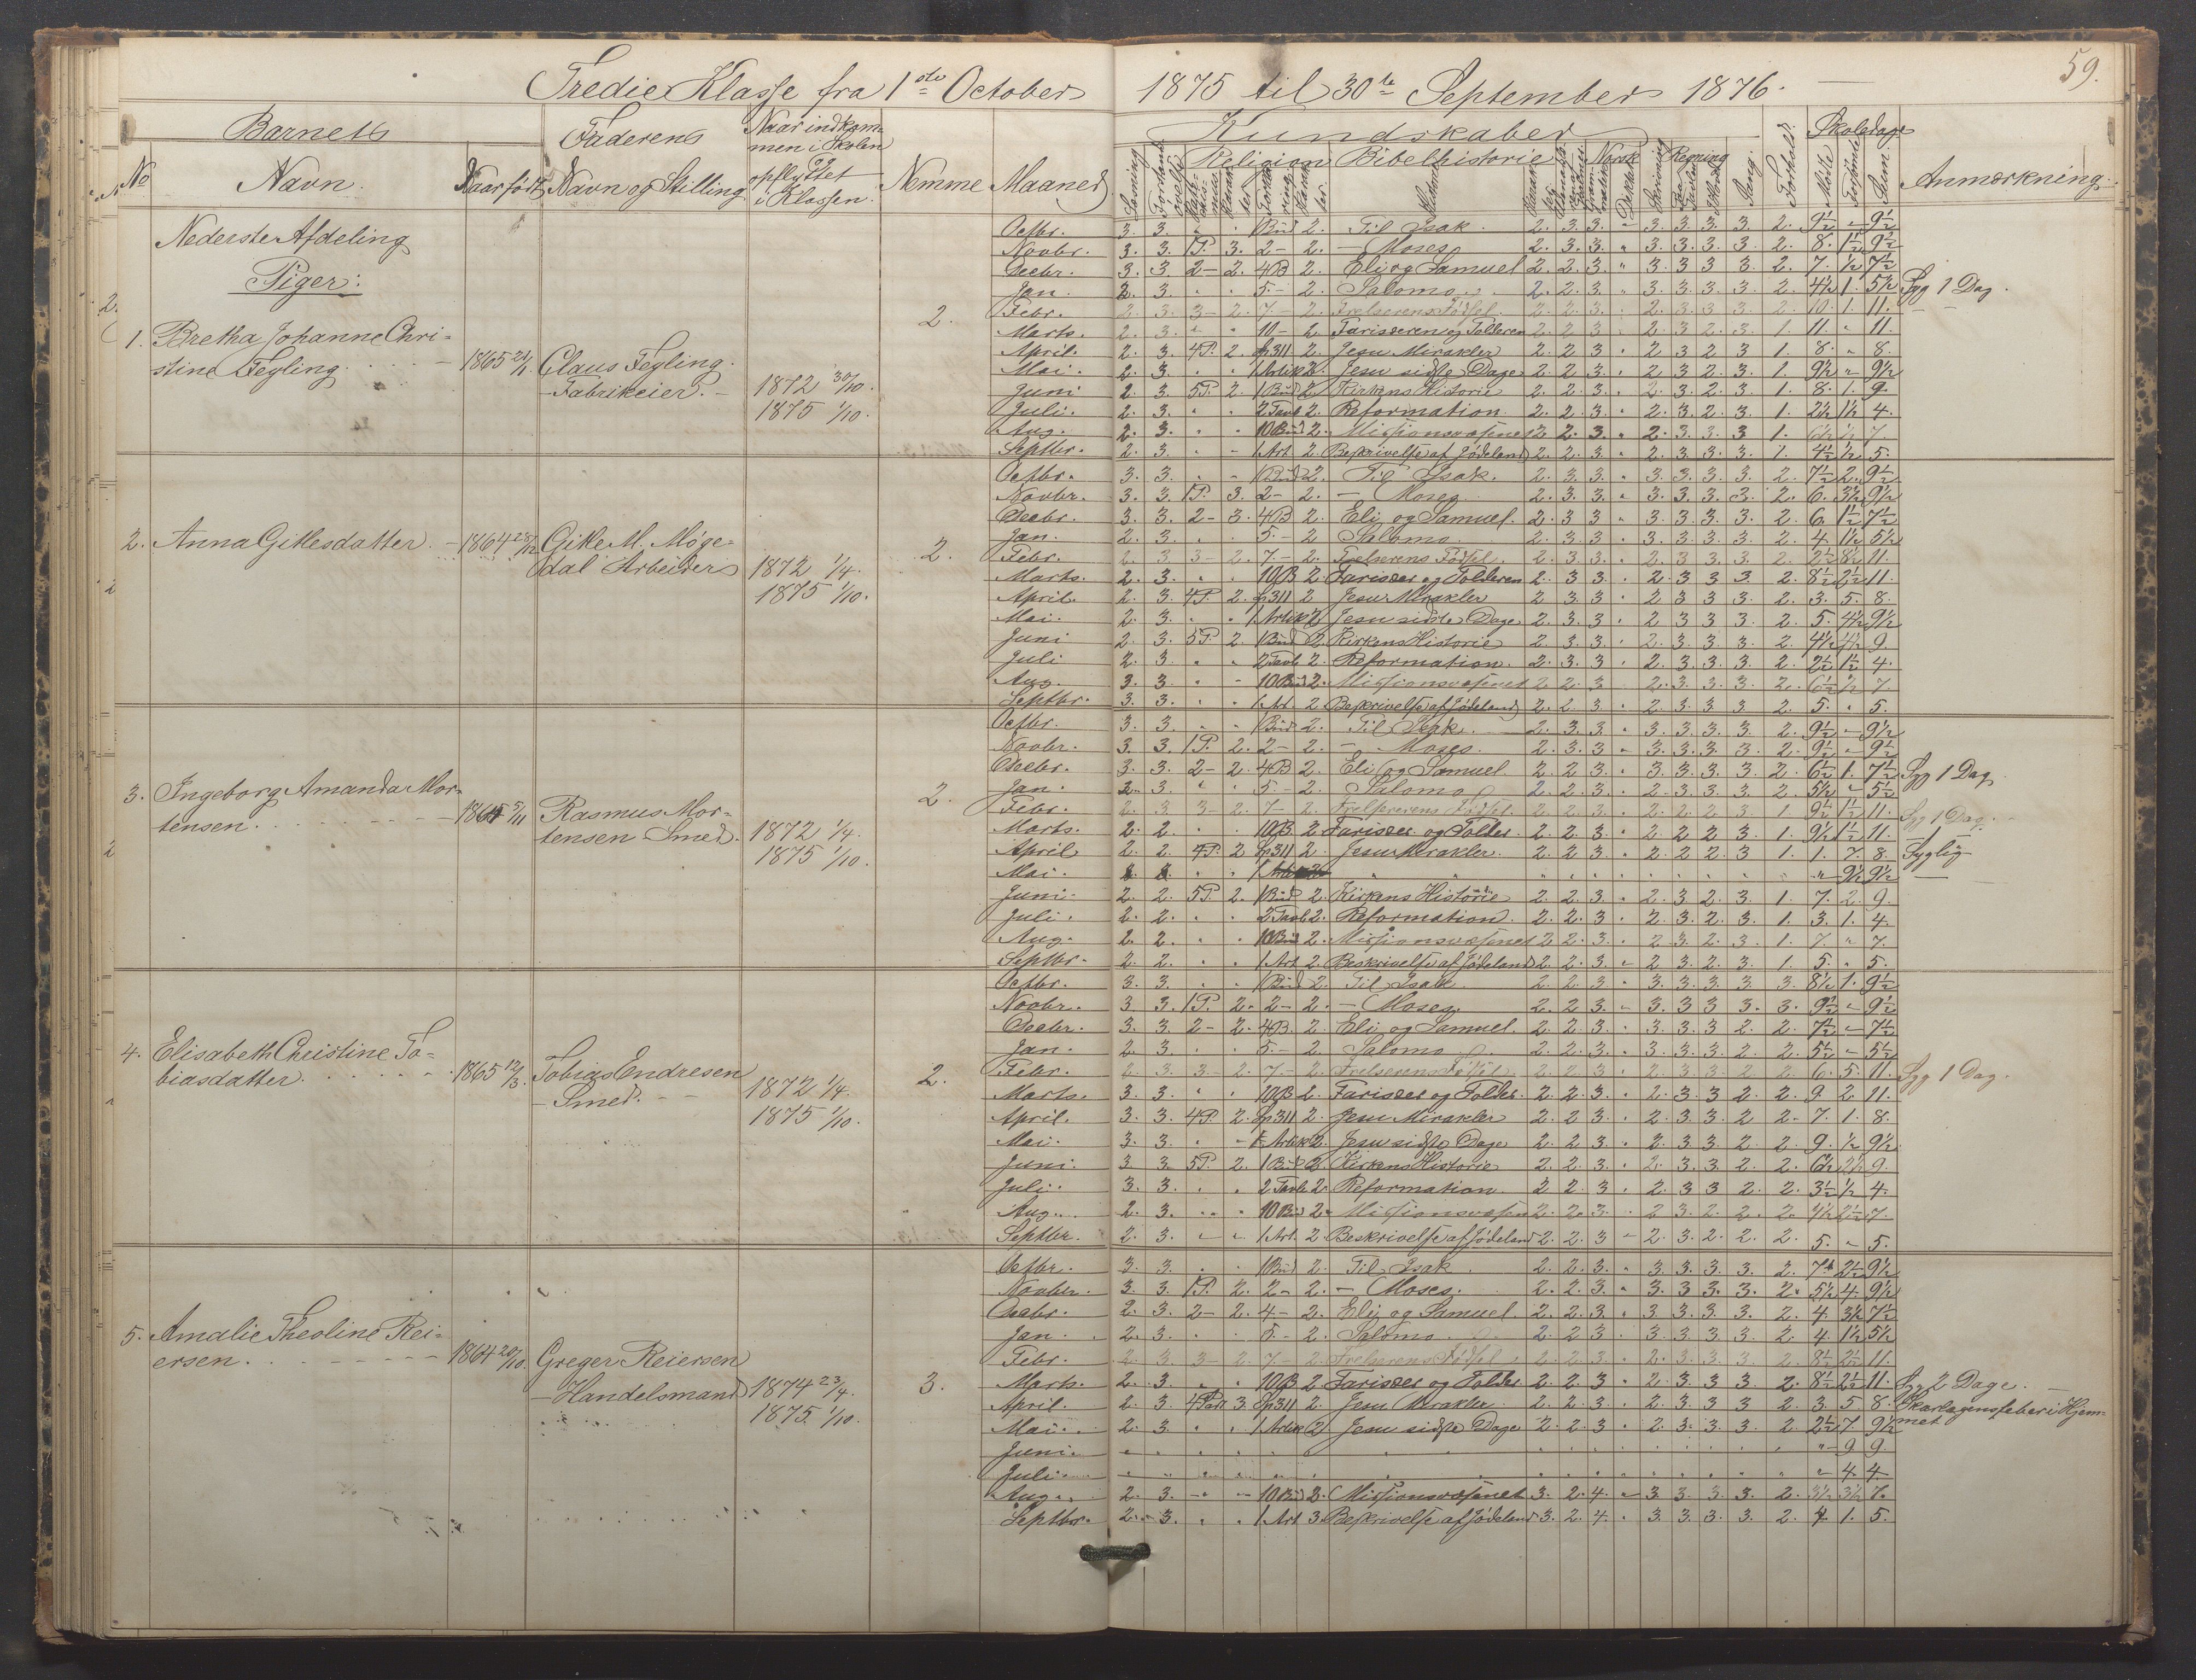 59.
Tredie Klasse fra 1ste October 1875 til 30te September 1876.
Barnets
Faderens
Naar indkom-
men i Skolen
opflyttet
i Klassen.
Kundskaber
Forhold.
Skoledage
No
Navn.
Naar født
Navn og Stilling
Nemme
Maaned
Religion
Bibelhistorie
Norsk
Regning
Sang.
Mødte
Forsømte
Sum
Anmærkning.
Nederste Afdeling
Piger:
1. Bretha Johanne Chri-
stine Tegling
1865 21/1
Claus Tegling.
Fabrikeier.
1872 30/10.
1875 1/10.
2.
Octbr. 3. 3. 1 Bud 2. Til Isak. 2. 3. 3. 3. 3. 3. 3. 2. 9½ 9½
Novbr. 3. 3. 1P. 3. 2 - 2. - Moses 2. 3. 3. 3. 3. 3. 3. 2. 8. 1½ 9½
Decbr. 3. 3. 2 - 2. 4B 2. Eli og Samuel 2. 2. 3. 3. 3. 3. 3. 2. 7. ½ 7½
Jan. 2. 3. 5. - 2. Salomo. 2. 2. 3. 3. 3. 3. 3. 2. 4½ 1. 5½ Syg 1 Dag.
Febr. 2. 3. 3 - 2. 7 - 2. Frelserens Fødsel 2. 2. 3. 2. 3. 3. 3. 2. 10. 1. 11.
Marts. 2. 3. 10 - 2. Farisæeren og Tolderen 2. 2. 3. 2. 3. 2. 3. 1. 11. 11.
April. 2. 3. 4P. 2. Sp311 2. Jesu Mirakler 2. 2. 3. 2. 3. 2. 3. 1. 8. 8.
Mai. 2. 3. 1 Artik 2. Jesu sidste Dage 2. 2. 3. 2. 3. 2. 3. 1. 9½ 9½
Juni 2. 3. 5P. 2. 1 Bud 2. Kirkens Historie 2. 2. 3. 2. 3. 2. 3. 1. 8. 1. 9.
Juli. 2. 3. 2 Tavle 2. Reformation. 2. 2. 3. 2. 3. 2. 3. 1. 2½ 1½ 4.
Aug. 2. 3. 10 Bud 2. Missionsvæsenet 2. 2. 3. 2. 3. 3. 3. 1. 6½ ½ 7.
Septbr. 2. 3. 1 Art. 2. Beskrivelse af Jødeland 2. 2. 3. 2. 3. 3. 3. 1. 4½ ½ 5.
2. Anna Gitlesdatter.
Gitle M. Møge-
dal Arbeider
1872 1/4.
1875 1/10.
2.
Octbr. 3. 3. 1 Bud 2. Til Isak. 2. 3. 3. 3. 3. 3. 3. 2. 7½ 2. 9½
Novbr. 3. 3. 1P. 3. 2 - 2. - Moses. 2. 3. 3. 3. 3. 3. 3. 2. 6. 3½ 9½
Decbr. 3. 3. 2 - 3. 4B 2. Eli og Samuel. 2. 3. 3. 3. 3. 3. 3. 2. 6. 1½ 7½
Jan. 2. 3. 5. - 2 Salomo. 2. 3. 3. 3. 3. 3. 3. 2. 4. 1½ 5½
Febr. 2. 3. 3 - 2. 7 - 2. Frelserens Fødsel 2. 3. 3. 2. 3. 3. 3. 2. 2½ 8½ 11.
Marts. 2. 3. 10B 2. Farisæer og Tolderen 2. 3. 3. 2. 3. 3. 3. 2. 8½ 2½ 11.
April. 2. 3. 4P. 2. Sp311 2 Jesu Mirakler 2. 3. 3. 2 3 3 3. 2. 3. 5. 8.
Mai. 2. 3. 1 Artik 2 Jesu sidste Dage 2. 3. 3. 2 3 3 3. 2. 5. 4½ 9½
Juni 2. 3. 5P. 2. 1 Bud 2 Kirkens Historie 2. 3. 3. 2. 3. 3. 3. 2. 4½ 4½ 9.
Juli 2. 3. 2 Tavle 2. Reformation. 2. 3. 3 2. 3. 3. 3. 2. 2½ 1½ 4.
Aug. 3. 3. 10 Bud 2. Missionsvæsenet 2. 2. 3 2. 3. 3. 3. 2. 6½ ½ 7.
Septbr. 3. 3. 1 Art. 2 Beskrivelse af Jødeland 2. 2 3 2 3. 3. 3 2. 5. 5.
3. Ingeborg Amanda Mor-
tensen.
Rasmus Mor-
tensen Smed.
1872 1/4.
1875 1/10.
2.
Octbr. 3. 3. 1 Bud 2. Til Isak. 2. 3. 3. 3. 3. 3. 3. 2. 9½ 9½
Novbr. 3. 3. 1P. 2. 2 - 2. - Moses. 2. 3. 3 3. 3. 3. 3. 2. 9½ 9½
Decbr. 3. 3. 2 - 2. 4B 2. Eli og Samuel. 2. 2 3. 3. 3. 3. 3. 2. 6½ 1. 7½ Syg 1 Dag
Jan. 2. 3. 5. - 2. Salomo 2. 2. 3. 2. 3. 3. 3. 2. 5½ 5½
Febr. 2. 3. 3 - 2. 7 - 2. Frelserens Fødsel. 2. 2 3. 2. 2. 2. 3 1. 9½ 1½ 11. Syg 1 Dag.
Marts. 2. 2. 10B 2 Farisæer og Tolder. 2. 2 3. 2 2 2 3. 1. 9½ 1½ 11. - 1 -
April 2. 2. 4P. 2 Sp311 2. Jesu Mirakler. 2. 2 3. 2. 2 2. 3 1. 1. 7. 8. Syglig
Mai. 9½ 9½
Juni. 2. 2. 5P. 2. 1 Bud 2. Kirkens Historie 2. 2. 3. 2. 3 2. 3 1. 7. 2. 9.
Juli. 2. 2. 2 Tavle 2. Reformation. 2. 2. 3. 2. 3. 2. 3. 1. 3. 1. 4.
Aug. 2. 2. 10 Bud 2. Missionsvæsenet 2. 2. 3. 2. 3. 2. 3. 1. 7. 7.
Septbr. 2. 2. 1 Art 2. Beskrivelse af Jødeland 2. 2. 3. 2 3. 2. 3. 1. 5. 5.
4. Elisabeth Christine To-
biasdatter.
1865 12/3.
Tobias Endresen
- Smed.
1872 1/4.
1875 1/10.
2.
Octbr. 3. 3. 1 Bud 2. Til Isak 2. 2. 3. 3. 3. 3. 3. 3. 8½ 1. 9½
Novbr. 3 3. 1P. 2. 2 - 2. - Moses. 2. 2. 3. 3. 3 3 3. 3. 9½ 9½
Decbr. 3. 3. 2 - 2. 4B. 2. Eli og Samuel. 2. 2 3. 3. 3 3 2. 2. 7½ 7½
Jan. 2. 3. 5. - 2. Salomo 2. 2. 3. 3. 3. 3. 2. 2. 5½ 5½
Febr. 2. 3. 3 - 2. 7. - 2. Frelserens Fødsel 2. 2 3. 2. 3 3. 2 2. 6. 5. 11. Syg 1 Dag.
Marts. 3. 3. 10B 2. Farisæer og Tolder. 2. 2 3. 2. 3. 3 2. 2. 9 2 11.
April. 3. 3. 4P. 2. Sp311 2. Jesu Mirakler 2. 2. 3. 2. 3. 3. 2 2. 7. 1. 8.
Mai. 3. 3. Artik 2. Jesu sidste Dage 2. 2 3. 2. 3 3. 2 2. 9. ½ 9½
Juni. 3 3. 5P. 2. 1 Bud 2. Kirkens Historie 2. 2. 3. 2. 3. 3. 2. 2. 6½ 2½ 9.
Juli. 3. 3. 2 Tavle 2. Reformation. 2 2. 3. 2. 3 3 2. 2. 3½ ½ 4.
Aug. 2. 3. 10 Bud 2. Missionsvæsen 2. 2. 3. 2 3. 2. 2. 2. 4½ 2½ 7.
Septbr. 2. 3. 1 Art. 2 Beskrivelse af Jødeland 2. 2. 3 2. 3. 2. 2. 2. 5. 5.
5. Amalie Theoline Rei-
ersen.
1864 20/10.
Greger Reiersen
- Handelsmand
1874 23/4.
1875. 1/10.
3.
Octbr. 3. 3. 1 Bud 2. Til Isak. 2. 2. 3. 3. 3. 3. 3. 2. 7 2½ 9½
Novbr. 3. 3. 1P. 2. 2 - 2. - Moses. 2. 2. 3. 3. 3. 3. 3. 2. 5½ 4. 9½
Decbr. 2. 3. 2 - 2. 4 - 2. Eli og Samuel. 2. 2. 3. 3. 3. 3. 3. 2. 4. 3½ 7½
Jan. 2. 3. 5. - 2. Salomo. 2. 2 3 3. 3. 3. 3. 2. 4. 1½ 5½
Febr. 2. 3. 3 - 2. 7 - 2. Frelserens Fødsel. 2. 2. 3. 2. 3. 3. 3. 2. 8½ 2½ 11.
Marts. 2. 3. 10B 2 Farisæer og Tolder. 2. 2 3. 2. 3 3 3. 2. 8½ 2½ 11. Syg 2 Dage.
April. 2. 3 4Part 3. Sp311 2. Jesu Mirakler. 2. 2 3. 2. 3. 3. 3 2. 3. 5 8. Skarlagensfeber i Hjem-
met
Mai. 2. 3. 1 Artik 2 Jesu sidste Dage 2. 2. 3 2. 3. 3. 3. 2 2½ 7. 9½
Juni. 9. 9.
Juli 4. 4.
Aug. 2. 3. 10 Bud 3. Missionsvæsenet 3. 2. 4. 3. 3. 3. 3. 2. 3½ 3½ 7.
Septbr. 2. 3. 1 Art 3. Beskrivelse af Jødeland 3. 2. 4. 3. 3. 3. 3. 2. 4. 1. 5.